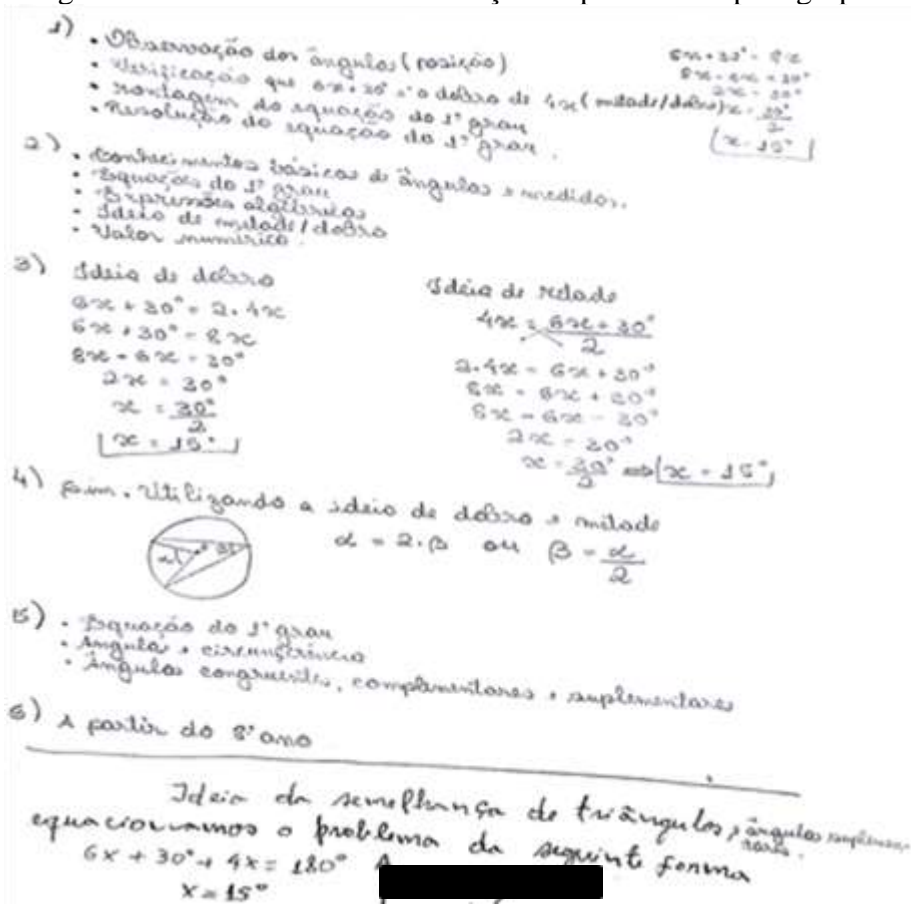 1) • Observação dos ângulos (posição)
• Verificação que 6x+30° é o dobro de 4x (metade/dobro)
• Montagem da equação do 1º grau
• Resolução da equação do 1º grau.
6x+30° = 8x
8x-6x = 30°
2x = 30°
x = 30°/2
x = 15°
2) • Conhecimentos básicos de ângulos e medidas.
• Equações do 1º grau
• Expressões algébricas
• Ideia de metade/dobro
• Valor numérico.
3) Ideia de dobro
6x + 30° = 2.4x
6x + 30° = 8x
8x - 6x = 30°
2x = 30°
x = 30°/2
x = 15°
Ideia de metade
4x = 6x+30°/2
2.4x = 6x + 30°
8x = 6x + 30°
8x - 6x = 30°
2x = 30°
x = 30°/2 ⇒ x = 15°
4) Sim. Utilizando a ideia de dobro e metade
α = 2.β ou β = α/2
α
5) • Equação do 1º grau
• Ângulos e circunferência
• Ângulos congruentes, complementares e suplementares
6) A partir do 8º ano
Ideia da semelhança de triângulos, ângulos suplementares.
equacionamos o problema da seguinte forma
6x + 30° + 4x = 180°
x = 15°